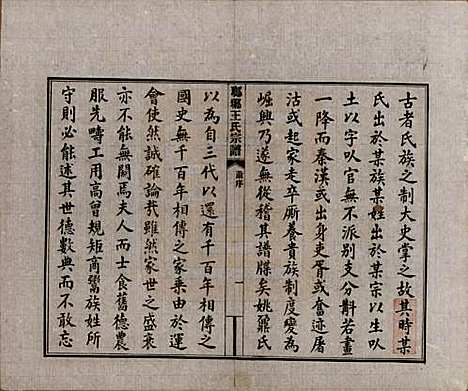 古者氏族之制大史掌之故其時某
氏出於某族某姓出於某宗以生以
土以字以官無不派別支分斠若畫
一降而秦漢或出身吏胥或奮迹屠
沽或起家走卒厮養貴族制度變為
崛興乃遂無從稽其譜牒矣姚鼐氏
琅邪王氏宗譜
序
一
以為自三代以還有千百年相傳之
國史無千百年相傳之家乘由於運
會使然誠確論哉雖然家世之盛衰
亦不能無關焉夫人而士食舊德農
服先疇工用高曾規矩商鬻族姓所
守則必能述其世德數典而不敢忘